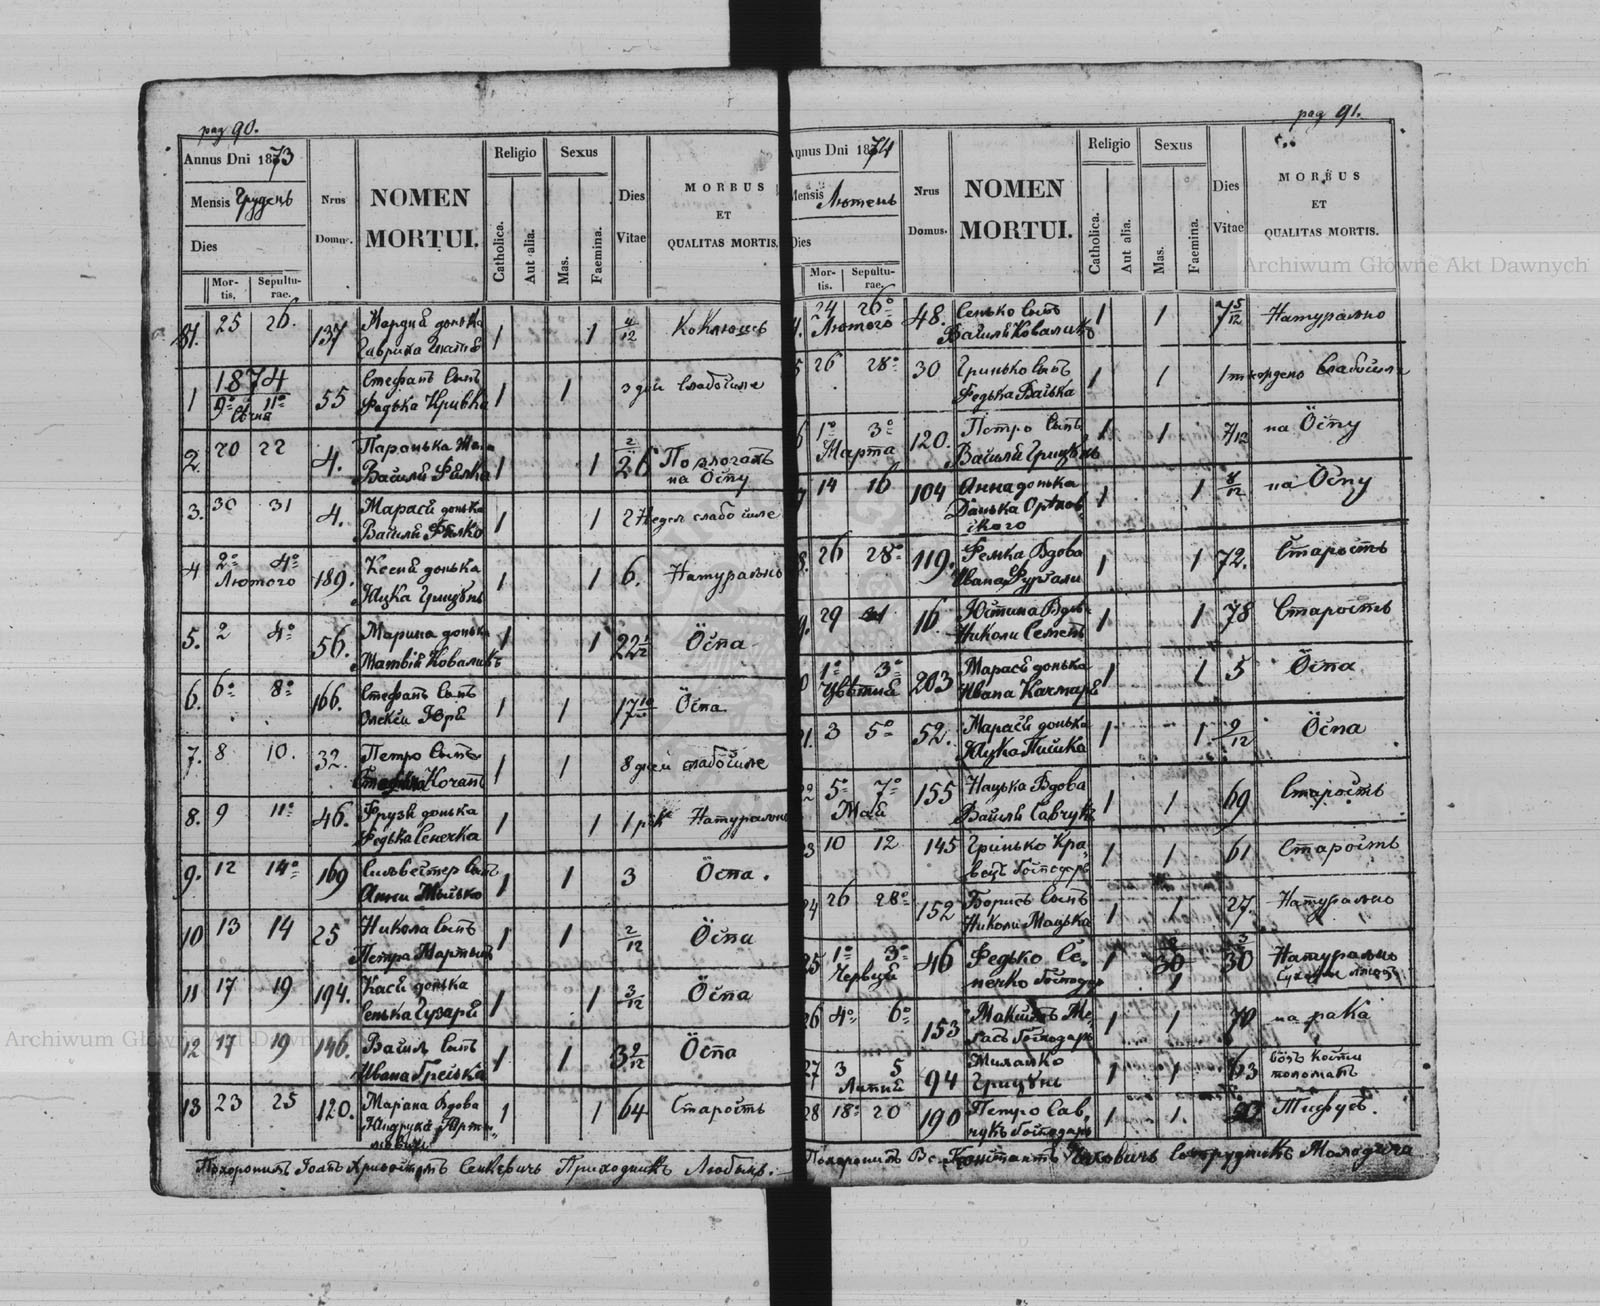 pag 90.
Annus Dni 1873
Mensis Грудень
Dies
Mortis,
Sepulturae.
Nrus Domus.
NOMEN MORTUI.
Religio
Catholica.
Aut alia.
Sexus
Mas.
Faemina.
Dies Vitae
MORBUS ET QUALITAS MORTIS.
81. 25 26. 137 донька Гаврила 1 1 4/12 Коклюшъ
1874
1 9º 11º Сѣчня 55 Стефанъ сынъ Федька Кривка 1 1 3 дни слабосиле
2. 20 22 4. Паранька жена Василя Фялка 1 1 26 на Оспу
3. 30 31 4. Марася донька Василя Фялко 1 1 2 Недѣл слабосиле
4 2º 4º Лютого 189. Ксеня донька Яцка Грицунь 1 1 6. Натурально
5. 2 4º 56. Марина донька Матвій Коваликъ 1 1 22 1/12 Оспа
6. 6º 8º 166. Стефанъ сынъ Олекси Юря 1 1 17 Оспа
7. 8 10. 32. Петро сынъ Кочанъ 1 1 8 дней слабосиле
8. 9 11º 46. Фрузя донька Федька Сенечка 1 1 1 рік Натурально
9. 12 14º 169 Сильвестер сынъ Анни 1 1 3 Оспа.
10 13 14 25 Никола сынъ Петра Мартын 1 1 2/12 Оспа
11 17 19 194. Кася донька Сенька Гузаря 1 1 3/12 Оспа
12 17 19 146. Василь сынъ Ивана Грейська 1 1 3 9/12 Оспа
13 23 25 120. Маріана Вдова Яндруха 1 1 64 Старость
Похоронилъ Іоанъ Хризостомъ Сенкевичъ Приходникъ Любыкн.
pag 91.
Annus Dni 1874
Mensis Лютень
Dies
Mortis.
Sepulturae.
Nrus Domus.
NOMEN MORTUI.
Religio
Catholica.
Aut alia.
Sexus
Mas.
Faemina.
Dies Vitae
MORBUS ET QUALITAS MORTIS.
4. 24 26º Лютого 48. Сенько сынъ Василя Коваликъ 1 1 7 5/12 Натурально
5 26 28º 30 Гринько сынъ Федька Васька 1 1 1 слабосиле
6 1º 3º Марта 120. Петро сынъ Василя Грицунь 1 1 7/12 на Оспу
7 14 16 104 Анна донька Данька Орѣховского 1 1 8/12 на Оспу
8. 26 28º 119. Фемка Вдова Ивана Фургали 1 1 72. Старость
9. 29 31 16. Юстина Вдова Николи Семенъ 1 1 78 Старость
0 1º 3º Цвѣтня 203 Марася донька Ивана Качмаря 1 1 5 Оспа
21. 3 5º 52. Марася донька Яцка Пишка 1 1 9/12 Оспа
22 5º 7º Май 155 Нацька Вдова Василя Савчукъ 1 1 69 Старость
23 10 12 145 Гринько Кравецъ Господарь 1 1 61 Старость
24 26 28º 152 Борисъ сынъ Николи Мацька 1 1 27. Натурально
25 1º 3º Червця 46 Федько Сенечко Господарь 1 1 30 Натурально
26 4º 6º 153 Максимъ Господарь 1 1 70 на рака
27 3 5 Липня 94 Миланко Грицунь 1 1 63 возъ кости поломалъ
28 18º 20 190 Петро Савчукъ Господарь 1 1. Тифусъ.
Похоронилъ Вс. Константъ Сотрудникъ Молодыча
Archiwum Główne Akt Dawnych
Archiwum Główne Akt Dawnych